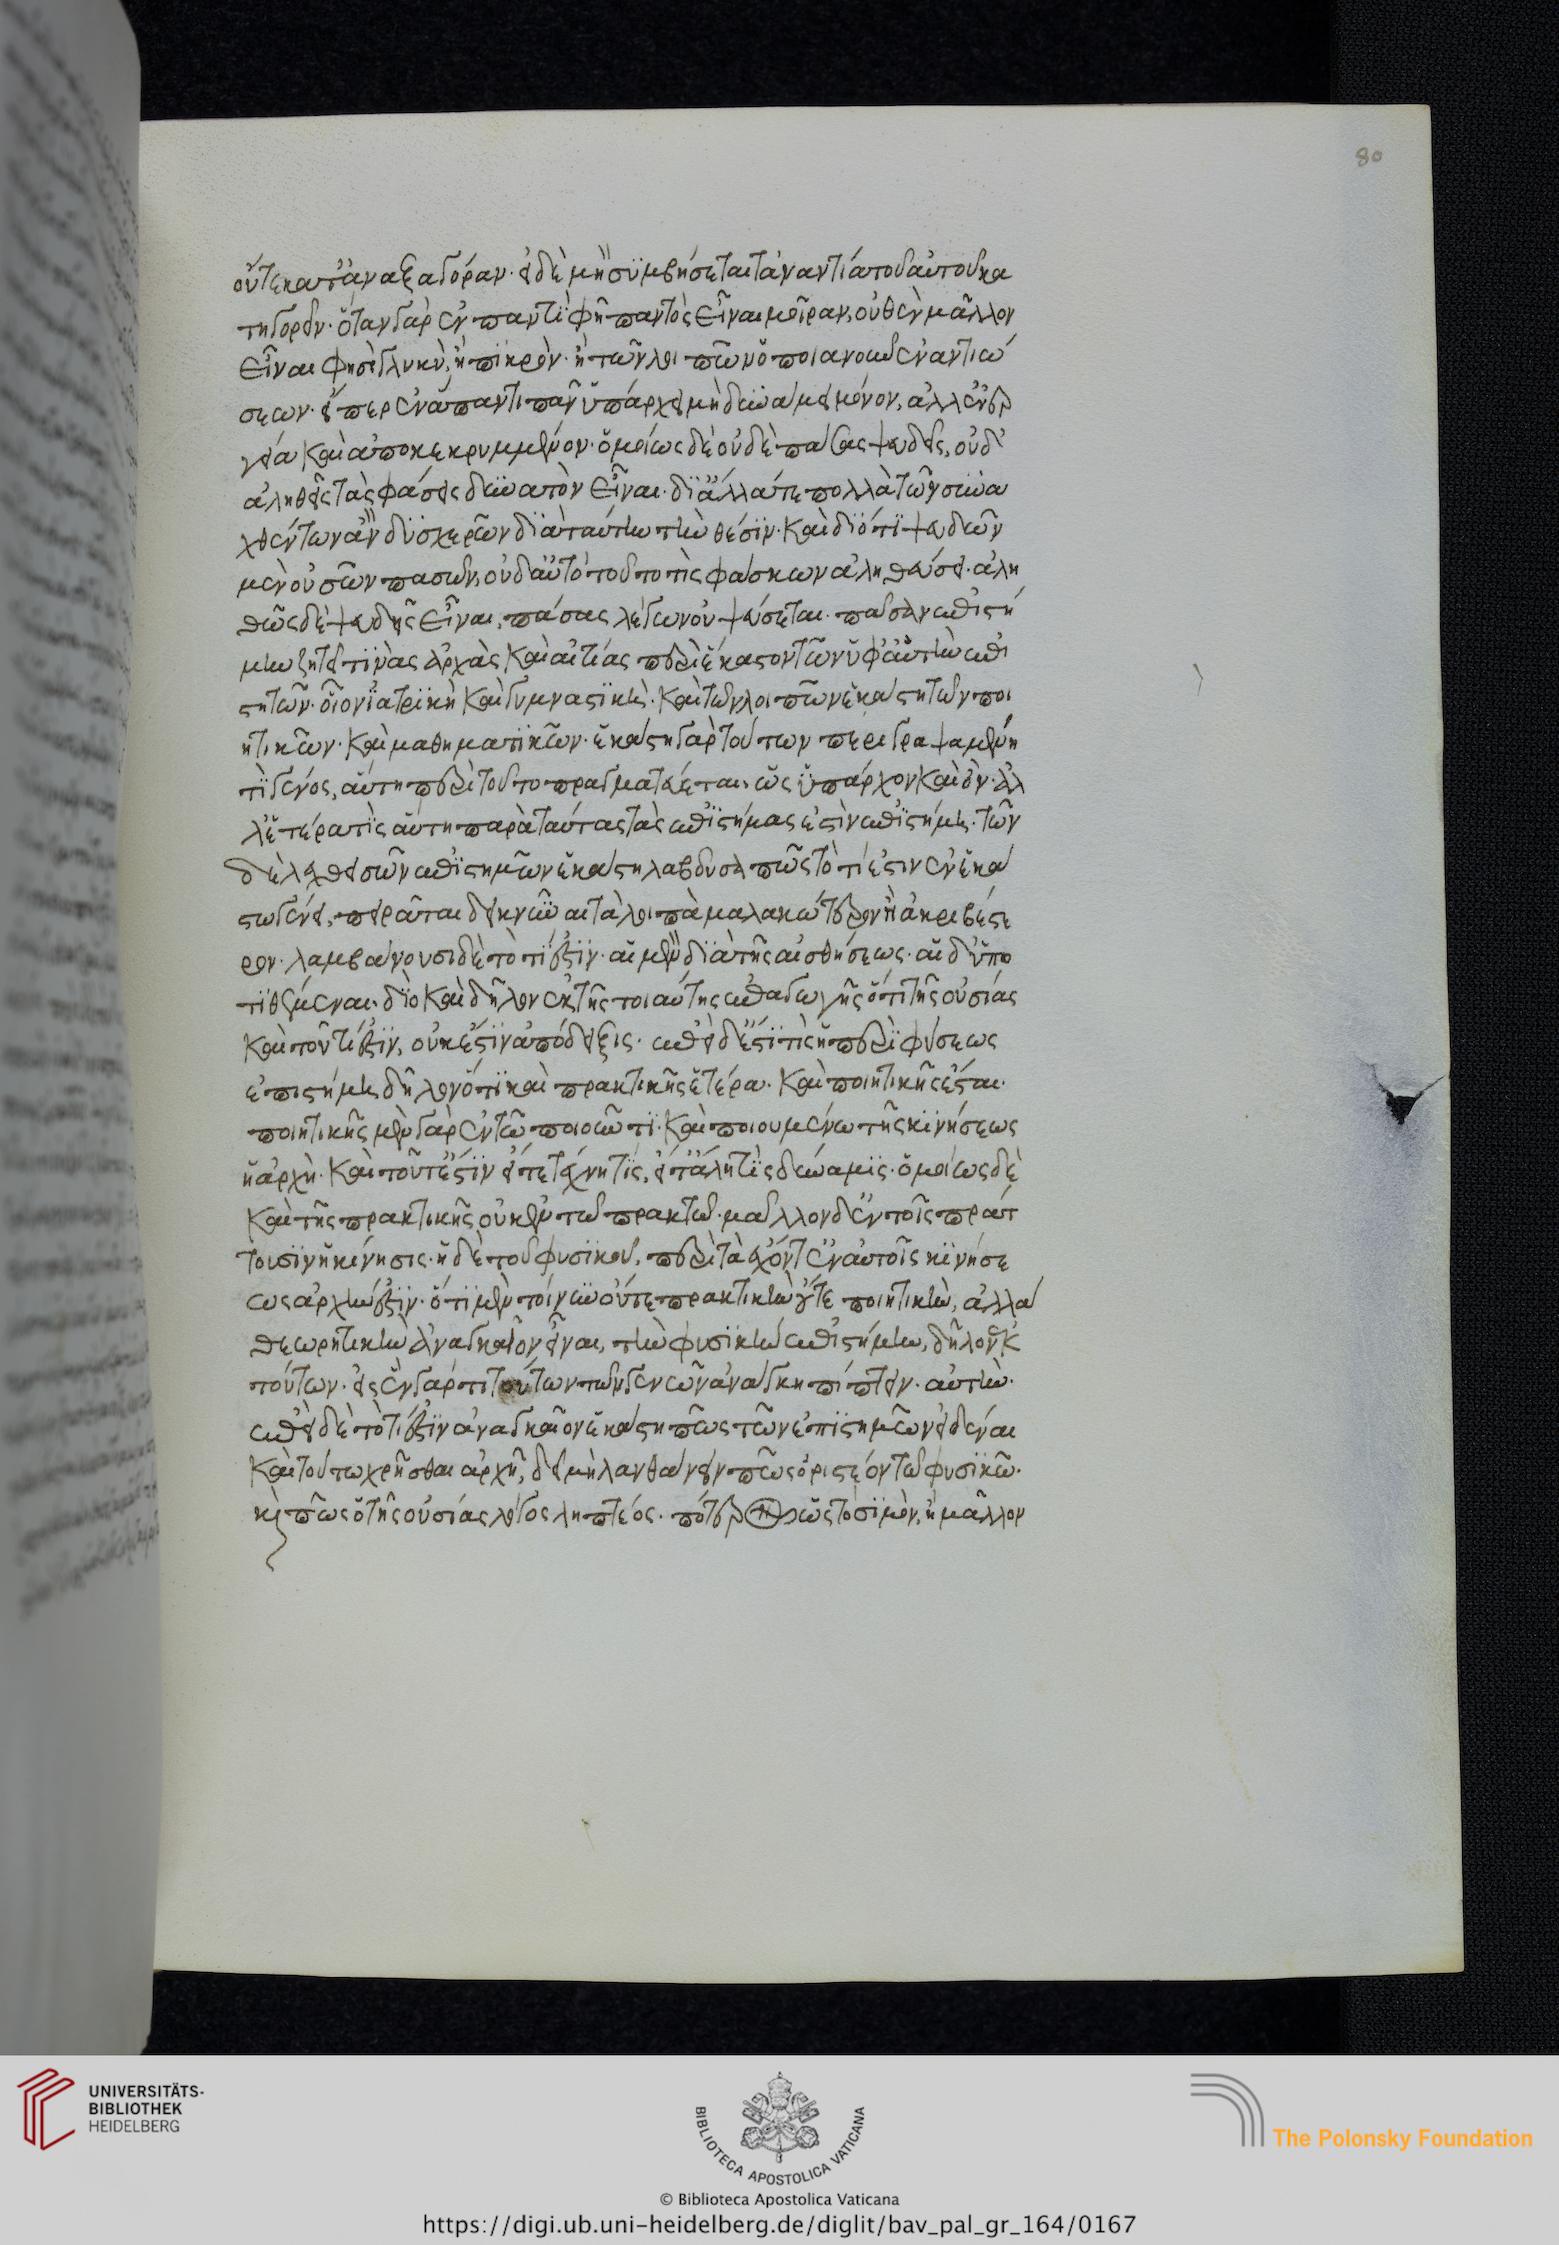 οὔτε κατ' ἀναξαγόραν· εἰ δὲ μὴ συμβήσεται τἀναντία τοῦ αὐτοῦ κα
τηγορεῖν· ὅταν γὰρ ἐν παντὶ φῆ παντὸς εἶναι μοῖραν, οὐθὲν μᾶλλον
εἶναι φησὶ γλυκὺ, ἢ πικρὸν· ἢ τῶν λοιπῶν ὁποιανοῦν ἐναντιώ
σεων· εἴπερ ἐν ἅπαντι πᾶν ὑπάρχει μὴ δυνάμει μόνον, ἀλλ' ἐνερ
γεία καὶ ἀποκεκρυμμένον· ὁμοίως δὲ οὐδὲ πάσας ψευδεῖς, οὐδ'
ἀληθεῖς τὰς φάσεις δυνατὸν εἶναι· δι' ἄλλα τε πολλὰ τῶν συνα
χθέντων ἂν δυσχερῶν διὰ ταύτην τὴν θέσιν· καὶ διότι ψευδῶν
μὲν οὐσῶν πασῶν, οὐδ' αὐτὸ τοῦτο τὶς φάσκων ἀληθεύσει· ἀλη
θῶς δὲ ψευδῆς εἶναι, πάσας λέγων οὐ ψεύσεται. πᾶσα δ' ἐπιστή
μην ζητεῖ τινὰς ἀρχὰς καὶ αἰτίας περὶ ἕκαστον τῶν ὑφ' αὑτὴν ἐπι
στητῶν· οἷον ἰατρικὴ καὶ γυμναστικὴ· καὶ τῶν λοιπῶν ἑκάστη τῶν ποι
ητικῶν· καὶ μαθηματικῶν· ἑκάστη γὰρ τούτων περιγραψαμένη
τὶ γένος, αὕτη περὶ τοῦτο πραγματεύεται, ὡς ὑπάρχον καὶ ὂν· ἀλ
λ' ἑτέρα τὶς αὕτη παρὰ ταύτας τὰς ἐπιστήμας ἐστὶν ἐπιστήμη· τῶν
δὲ λεχθεισῶν ἐπιστημῶν ἑκάστη λαβοῦσα πῶς τὸ τί ἐστιν ἐν ἑκά
στω γένει, πειρᾶται δεικνύναι τὰ λοιπὰ μαλακώτερον ἢ ἀκριβέστε
ρον· λαμβάνουσι δὲ τὸ τί ἐστιν· αἱ μὲν διὰ τῆς αἰσθήσεως· αἱ δ' ὑπο
τιθέμεναι· διὸ καὶ δῆλον ἐκ τῆς τοιαύτης ἐπαγωγῆς ὅτι τῆς οὐσίας
καὶ τοῦ τί ἐστιν, οὐκ ἔστιν ἀπόδειξις. ἐπεὶ δ' ἔστι τὶς ἡ περὶ φύσεως
ἐπιστήμη δῆλον ὅτι καὶ πρακτικῆς ἑτέρα· καὶ ποιητικῆς ἔσται·
ποιητικῆς μὲν γὰρ ἐν τῶ ποιοῦντι· καὶ ποιουμένω τῆς κινήσεως
ἡ ἀρχὴ· καὶ τοῦτ' ἔστιν εἴτε τέχνη τὶς, εἴτ' ἄλη τὶς δύναμις· ὁμοίως δὲ
καὶ τῆς πρακτικῆς οὐκ ἐν τῶ πρακτῶ· μᾶλλον δ' ἐν τοῖς πράτ
τουσιν ἡ κίνησις· ἡ δὲ τοῦ φυσικοῦ, περὶ τὰ ἔχοντ' ἐν αὑτοῖς κινήσε
ως ἀρχήν ἐστιν· ὅτι μὲν τοίνυν οὔτε πρακτικὴν οὔτε ποιητικὴν, ἀλλὰ
θεωρητικὴν ἀναγκαῖον εἶναι, τὴν φυσικὴν ἐπιστήμην, δῆλον ἐκ
τούτων· εἰς ἓν γάρ τι τούτων τῶν γενῶν ἀνάγκη πίπτειν· αὐτὴν·
ἐπεὶ δὲ τὸ τί ἐστιν ἀναγκαῖον ἑκάστη πῶς τῶν ἐπιστημῶν εἰδέναι
καὶ τούτω χρῆσθαι ἀρχῆ, δεῖ μὴ λανθάνειν πῶς ὁριστέον τῶ φυσικῶ·
κὶ πῶς ὁ τῆς οὐσίας λόγος ληπτέος· πότερον ὡς τὸ σιμὸν, ἢ μᾶλλον
80
UNIVERSITÄTS-
BIBLIOTHEK
HEIDELBERG
BIBLIOTECA APOSTOLICA VATICANA
The Polonsky Foundation
© Biblioteca Apostolica Vaticana
https://digi.ub.uni-heidelberg.de/diglit/bav_pal_gr_164/0167